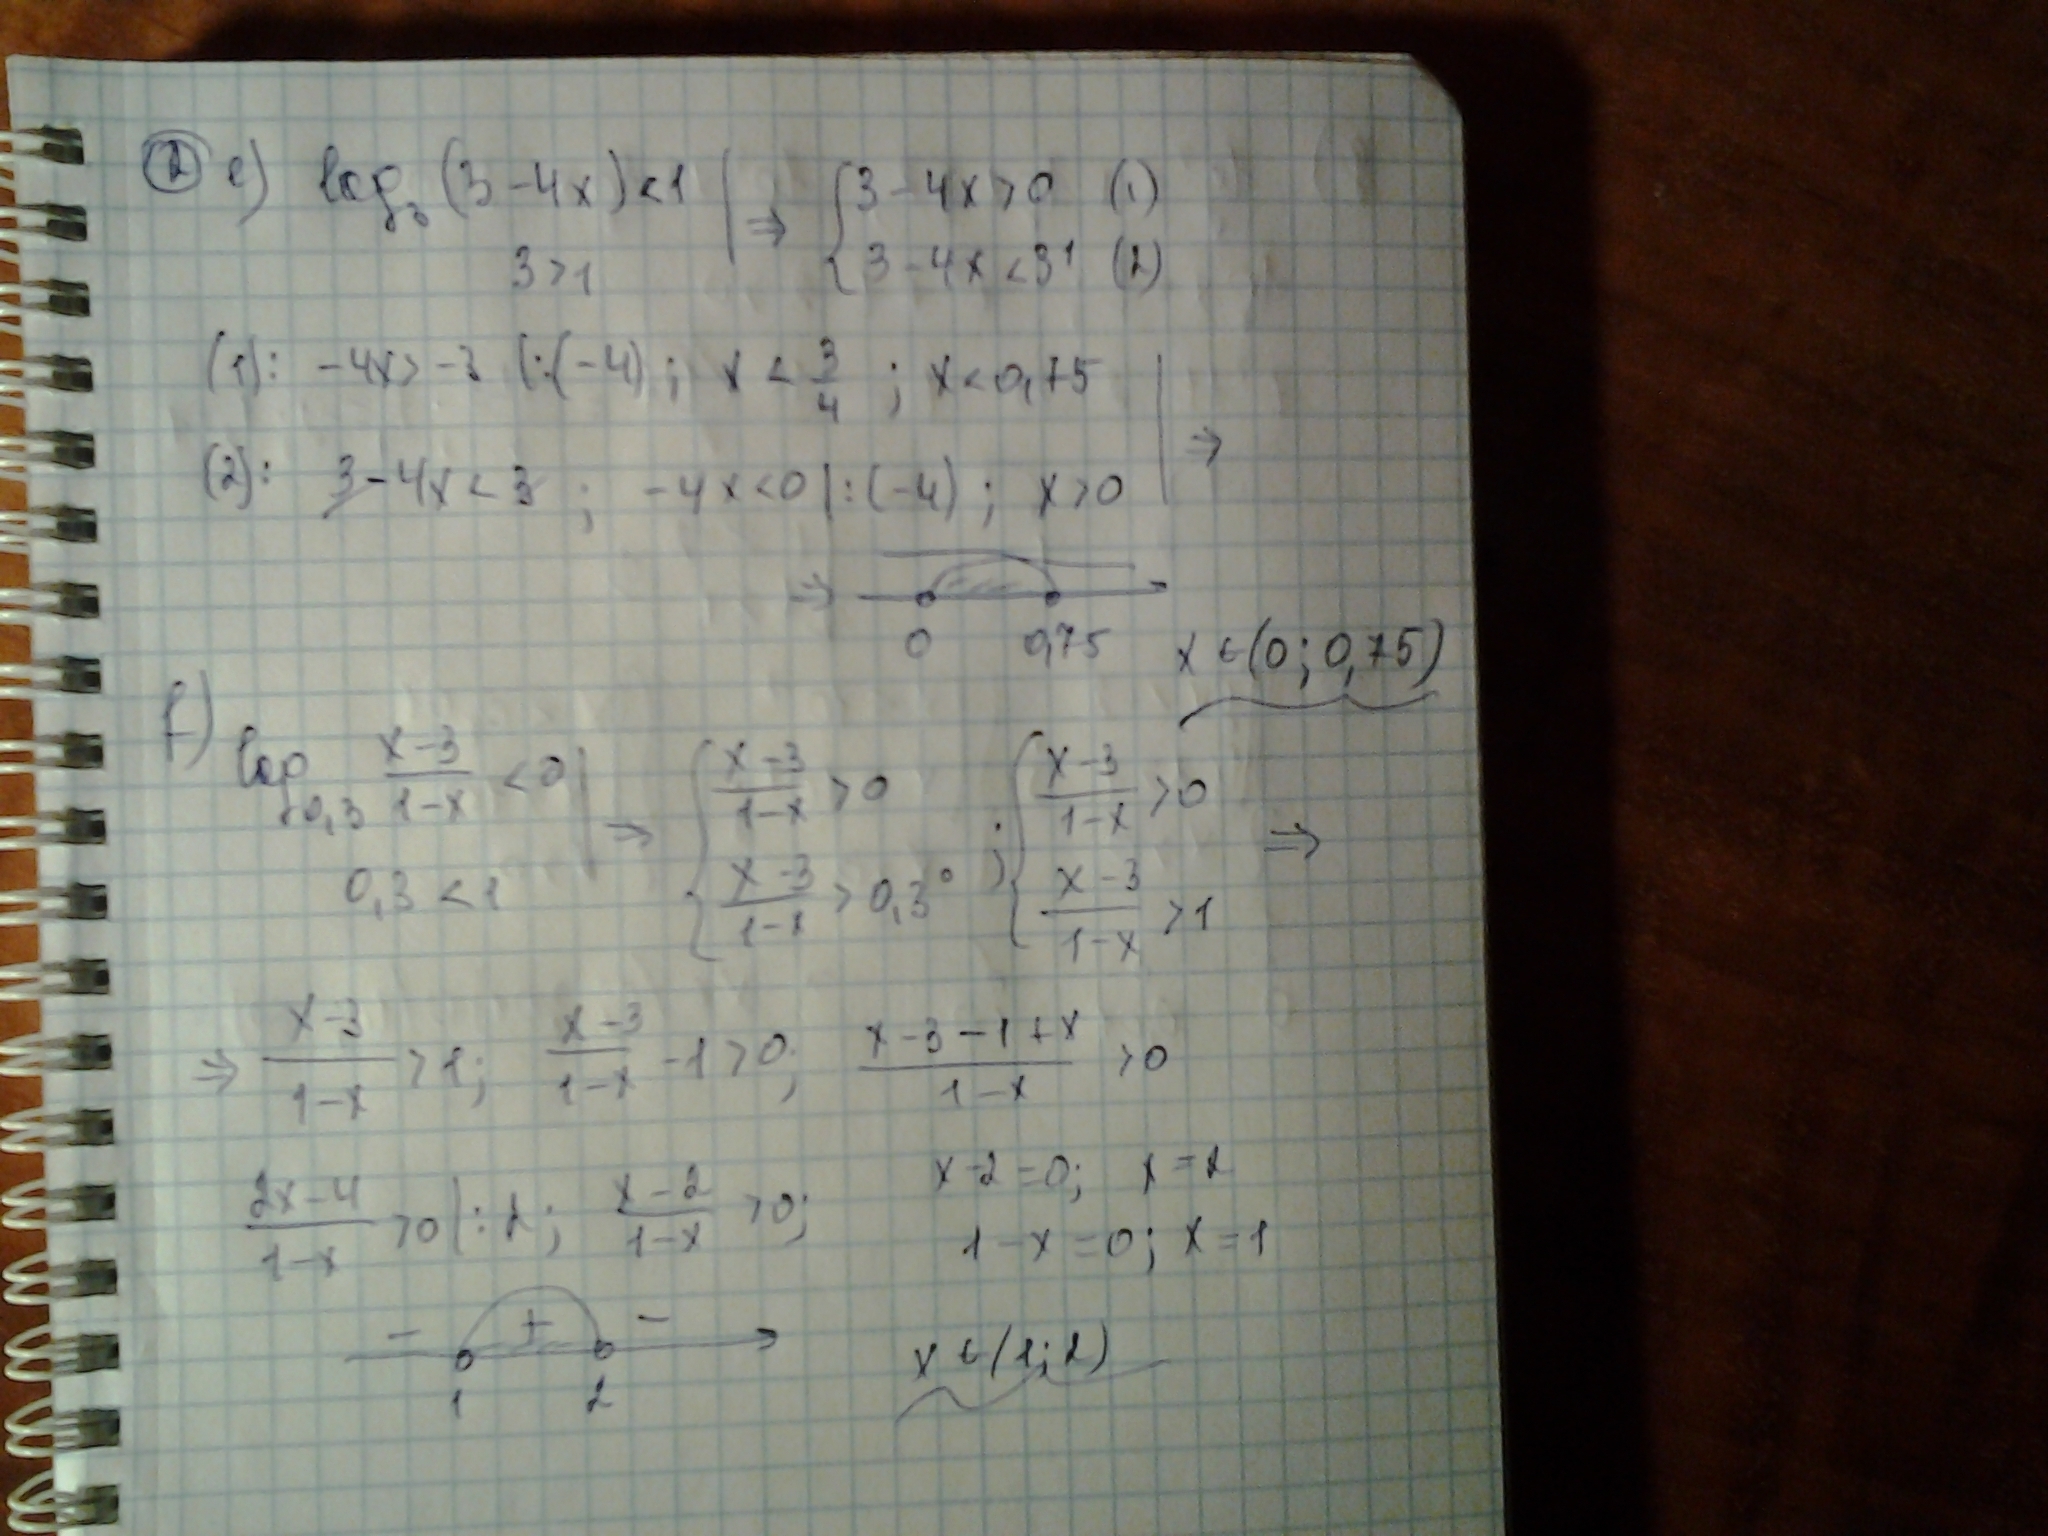 ② e) log₃(3-4x)<1 | ⇒ { 3-4x>0 (1)
3>1 { 3-4x<3¹ (2)
(1): -4x>-3 |:(-4); x<3/4; x<0,75 |
(2): 3-4x<3; -4x<0|:(-4); x>0 | ⇒
⇒
0 0,75 x∈(0;0,75)
f) log₀,₃ (x-3)/(1-x) <0 | ⇒ { (x-3)/(1-x) >0 ; { (x-3)/(1-x) >0 ⇒
0,3<1 { (x-3)/(1-x) >0,3⁰ { (x-3)/(1-x) >1
⇒ (x-3)/(1-x) >1; (x-3)/(1-x) -1>0; (x-3-1+x)/(1-x) >0
(2x-4)/(1-x) >0|:2; (x-2)/(1-x) >0; x-2=0; x=2
1-x=0; x=1
- + -
1 2 x∈(1;2)